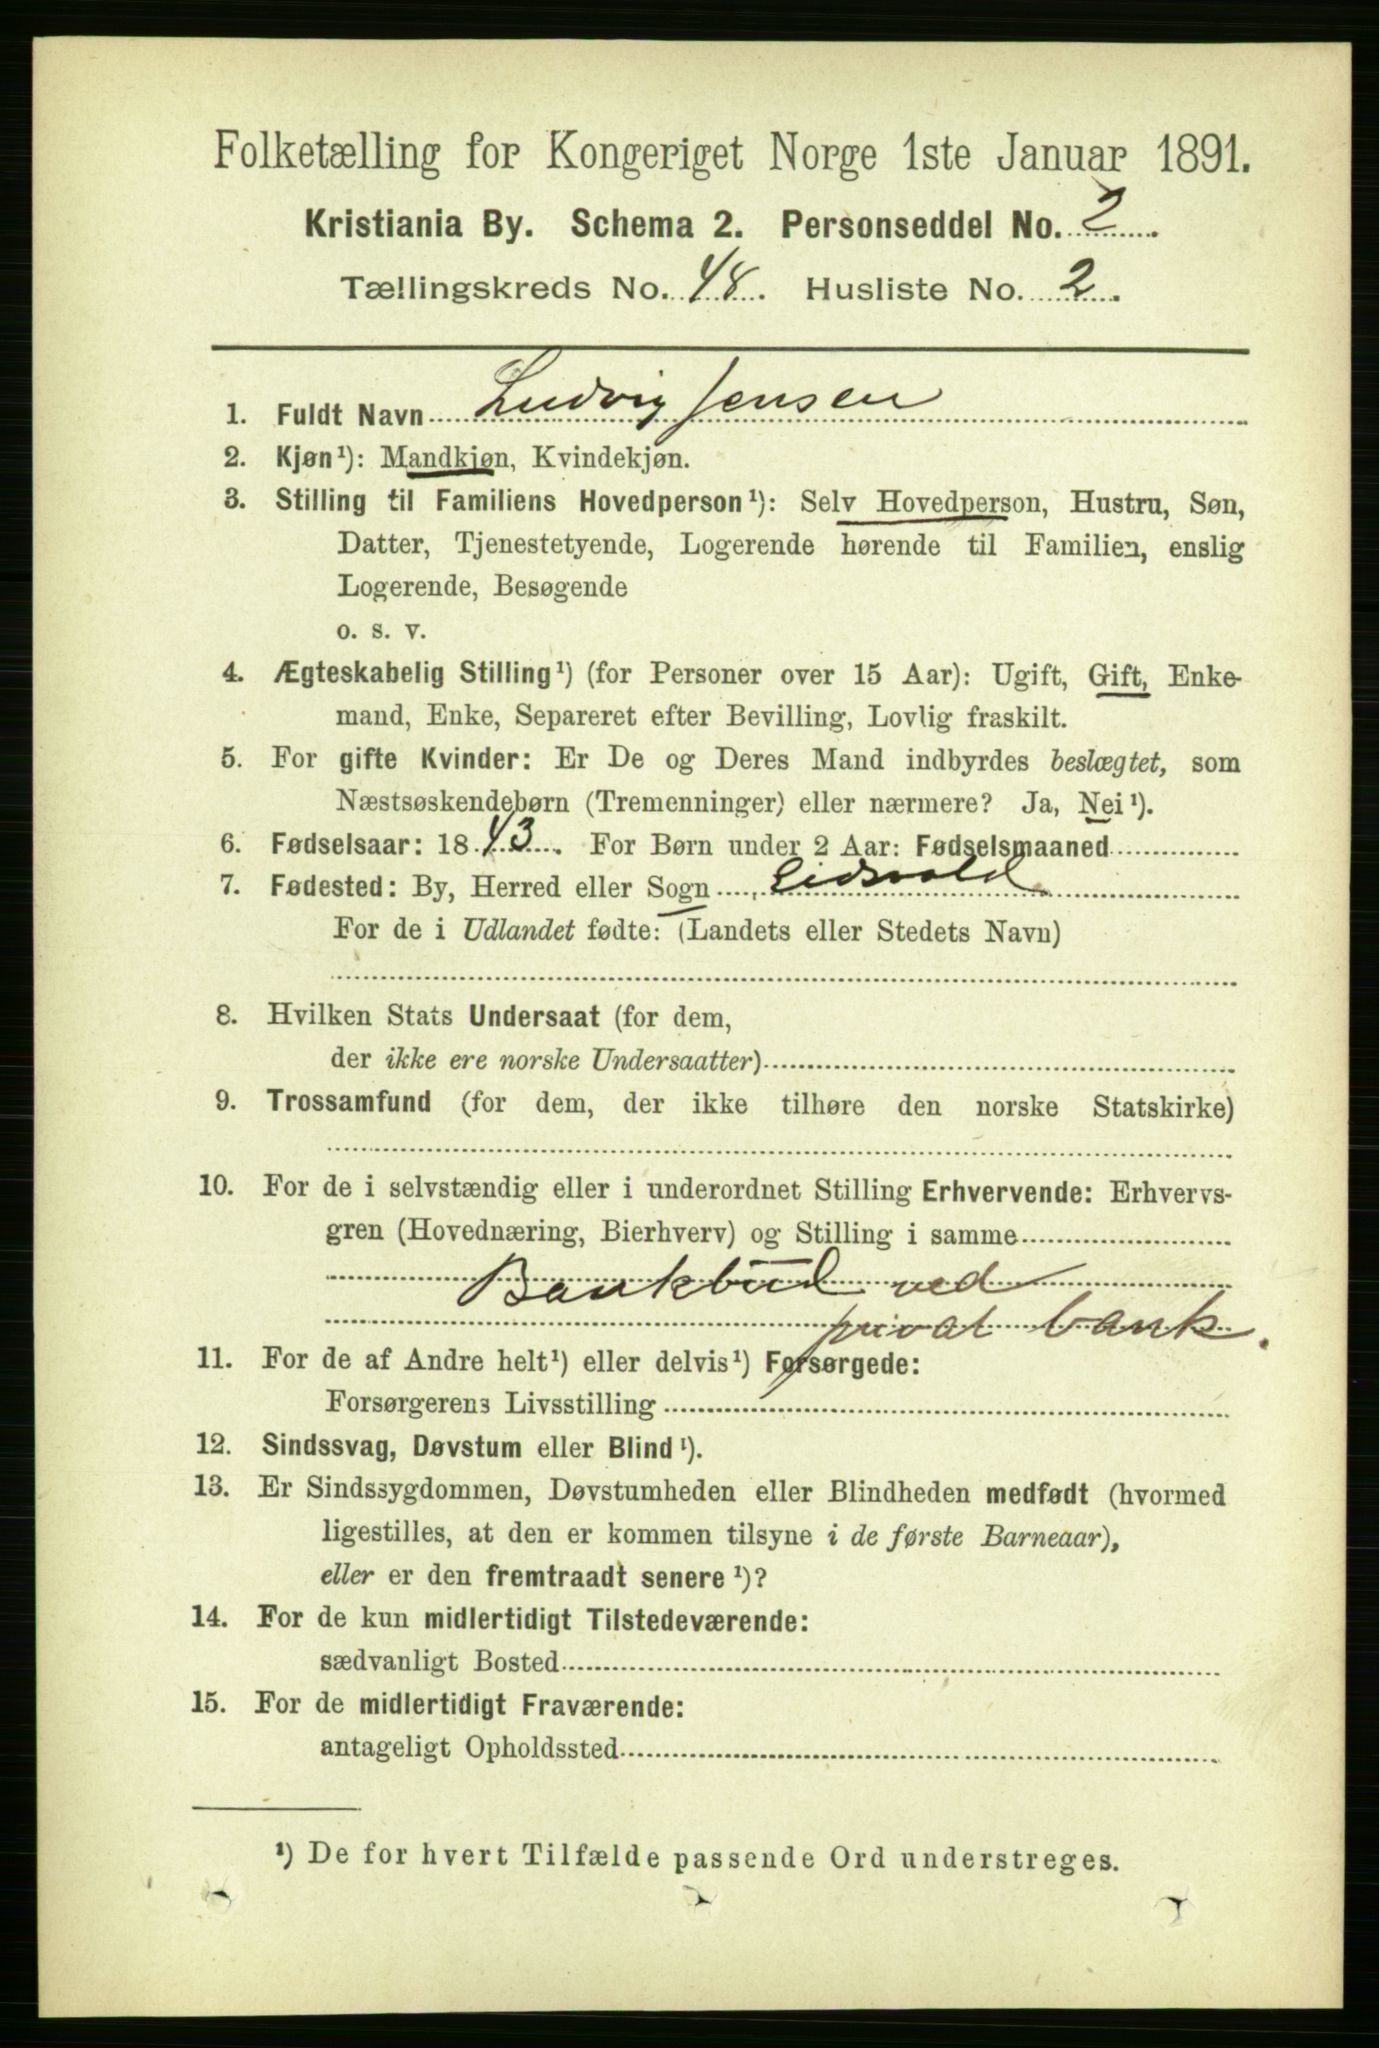 Folketælling for Kongeriget Norge 1ste Januar 1891.
Kristiania By. Schema 2. Personseddel No. 2
Tællingskreds No. 48. Husliste No. 2.
1. Fuldt Navn Ludvig Jensen
2. Kjøn¹): Mandkjøn, Kvindekjøn.
3. Stilling til Familiens Hovedperson¹): Selv Hovedperson, Hustru, Søn,
Datter, Tjenestetyende, Logerende hørende til Familien, enslig
Logerende, Besøgende
o. s. v.
4. Ægteskabelig Stilling¹) (for Personer over 15 Aar): Ugift, Gift, Enke-
mand, Enke, Separeret efter Bevilling, Lovlig fraskilt.
5. For gifte Kvinder: Er De og Deres Mand indbyrdes beslægtet, som
Næstsøskendebørn (Tremenninger) eller nærmere? Ja, Nei¹).
6. Fødselsaar: 1843. For Børn under 2 Aar: Fødselsmaaned
7. Fødested: By, Herred eller Sogn Eidsvold
For de i Udlandet fødte: (Landets eller Stedets Navn)
8. Hvilken Stats Undersaat (for dem,
der ikke ere norske Undersaatter)
9. Trossamfund (for dem, der ikke tilhøre den norske Statskirke)
10. For de i selvstændig eller i underordnet Stilling Erhvervende: Erhvervs-
gren (Hovednæring, Bierhverv) og Stilling i samme
Bankbud ved
privat bank.
11. For de af Andre helt¹) eller delvis¹) Forsørgede:
Forsørgerens Livsstilling
12. Sindssvag, Døvstum eller Blind¹).
13. Er Sindssygdommen, Døvstumheden eller Blindheden medfødt (hvormed
ligestilles, at den er kommen tilsyne i de første Barneaar),
eller er den fremtraadt senere¹)?
14. For de kun midlertidigt Tilstedeværende:
sædvanligt Bosted
15. For de midlertidigt Fraværende:
antageligt Opholdssted
¹) De for hvert Tilfælde passende Ord understreges.